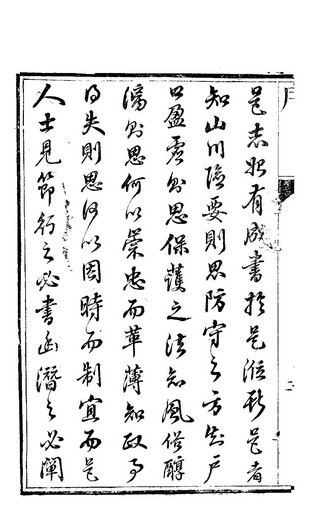 是志始有成書於是涖斯邑者
知山川險要則思防守之方知戶
口盈虛則思保護之法知風俗醇
漓則思何以崇忠而革薄知政事
得失則思何以因時而制宜而邑
人士見節行之必書幽潛之必闡